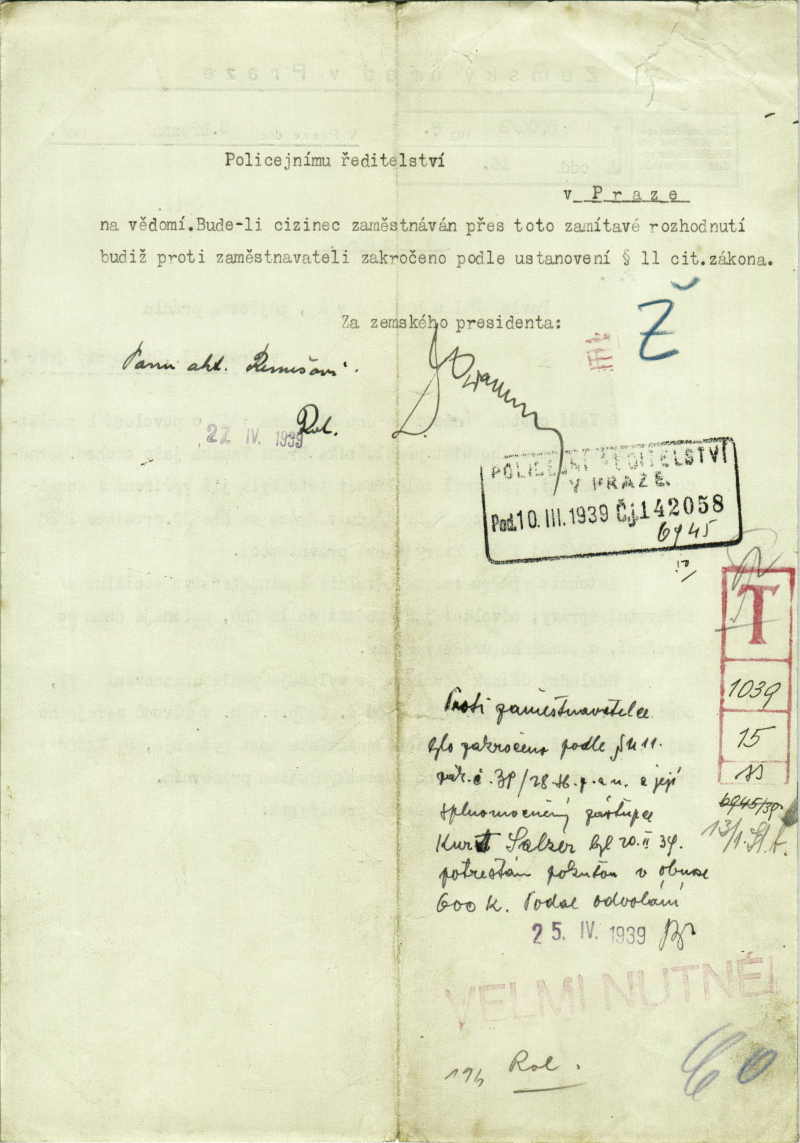 Policejnímu ředitelství
v Praze
na vědomí.Bude-li cizinec zaměstnáván přes toto zamítavé rozhodnutí
budiž proti zaměstnavateli zakročeno podle ustanovení § 11 cit.zákona.
Za zemského presidenta:
Ž
Panu akt.
Rol.
27 IV. 1939
POLICEJNÍ ŘEDITELSTVÍ
V PRAZE.
Pod. 10. III. 1939 Čj. 142058
6945
T
1039
15
Proti zaměstnavatelce
bylo zakročeno podle § 11.
zák.č. 39/28 Sb.z.a n. a její
splnomocněný zástupce
Kurt Salzer byl 20. II 39.
potrestán pokutou v obnose
600 K. Podal odvolání
25. IV. 1939
6945/39.
VELMI NUTNÉ!
Rol.